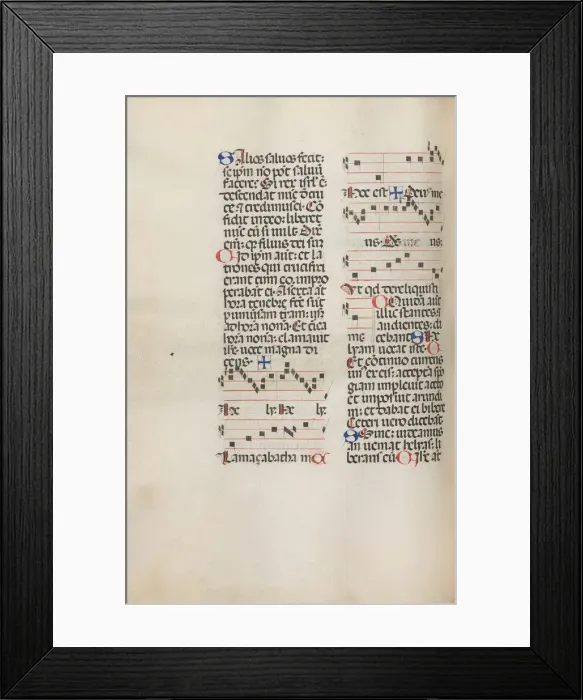 Alios saluos fecit:
seipm nō pōt saluū
facere: Si rex isrl ē:
descendat nūc de cru
ce: ⁊ credimus ei. Cō
fidit in deo: liberet
nūc eū si uult: Dix
em: q filius dei sum
Id ipm aut: et la
trones qui crucifixi
erant cum eo, impro
perabāt ei. A sexta āt
hora tenebre fce sūt
p uniuersam terram: usq
ad hora nona. Et circa
hora nona: clamauit
iħs uoce magna di
cens.
Hx ly. Hx ly.
Lamaçabatha ni
Hoc est Deus me
us: Ds me us:
Vt qd dereliquisti
me
Quidā aūt
illic stantes ⁊
audientes: di
cebant Hx
lyam uocat iste.
Et cōtinuo currens
un⁹ ex eis: acceptā spō
giam impleuit aceto
et imposuit arundi
ni: et dabat ei bibere
Ceteri uero dicebāt
Sine: uideamus
an ueniat helyas: li
berans eū Ihs āt